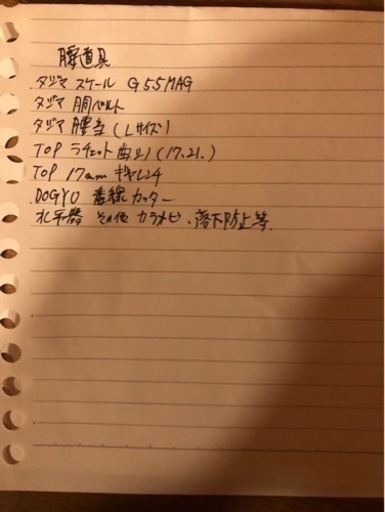 腰道具
タジマ スケール G55MAG
タジマ 胴ベルト
タジマ 腰当(Lサイズ)
TOP ラチェット 曲リ(17.21.)
TOP 17mm
DOGYU 番線カッター
水平器 その他 カラナビ、落下防止等